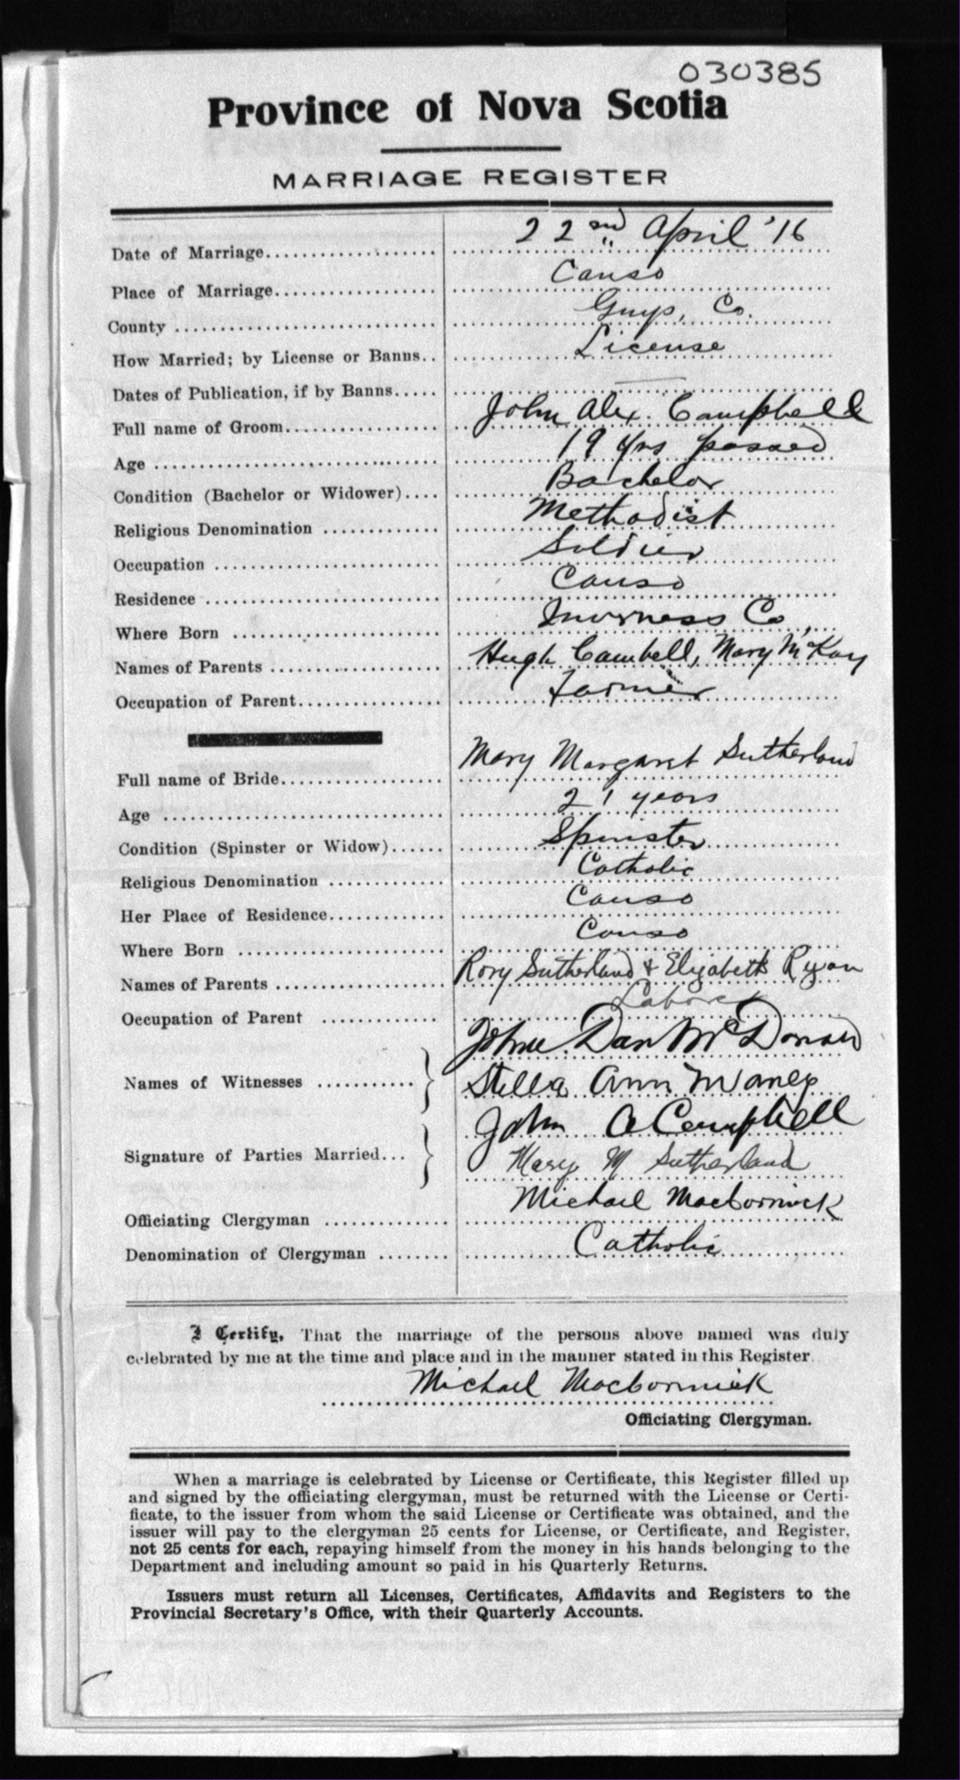 030385
Province of Nova Scotia
MARRIAGE REGISTER
Date of Marriage 22nd April '16
Place of Marriage Canso
County Guys, Co.
How Married; by License or Banns License
Dates of Publication, if by Banns —
Full name of Groom John Alex. Campbell
Age 19 yrs passed
Condition (Bachelor or Widower) Bachelor
Religious Denomination Methodist
Occupation Soldier
Residence Canso
Where Born Inverness Co
Names of Parents Hugh Cambell, Mary McKay
Occupation of Parent Farmer
Full name of Bride Mary Margaret Sutherland
Age 21 years
Condition (Spinster or Widow) Spinster
Religious Denomination Catholic
Her Place of Residence Canso
Where Born Canso
Names of Parents Rory Sutherland & Elizabeth Ryan
Occupation of Parent Laborer
John Dan McDonald
Names of Witnesses
Stella Ann
John A Campbell
Signature of Parties Married
Mary M Sutherland
Officiating Clergyman Michael MacCormick
Denomination of Clergyman Catholic
I Certify, That the marriage of the persons above named was duly
celebrated by me at the time and place and in the manner stated in this Register.
Michael MacCormick
Officiating Clergyman.
When a marriage is celebrated by License or Certificate, this Register filled up
and signed by the officiating clergyman, must be returned with the License or Certi-
ficate, to the issuer from whom the said License or Certificate was obtained, and the
issuer will pay to the clergyman 25 cents for License, or Certificate, and Register,
not 25 cents for each, repaying himself from the money in his hands belonging to the
Department and including amount so paid in his Quarterly Returns.
Issuers must return all Licenses, Certificates, Affidavits and Registers to the
Provincial Secretary's Office, with their Quarterly Accounts.